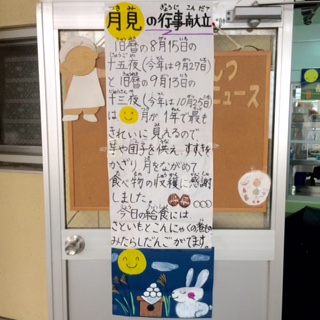 月見の行事献立
旧暦の8月15日の
十五夜(今年は9月27日)
と旧暦の9月13日の
十三夜(今年は10月25日)
は月が1年で最も
きれいに見えるので
芋や団子を供え、すすきを
かざり月をながめて
食べ物の収穫に感謝
しました。
今日の給食には
さといもとこんにゃくの煮もの
みたらしだんごがでます。
ニュース